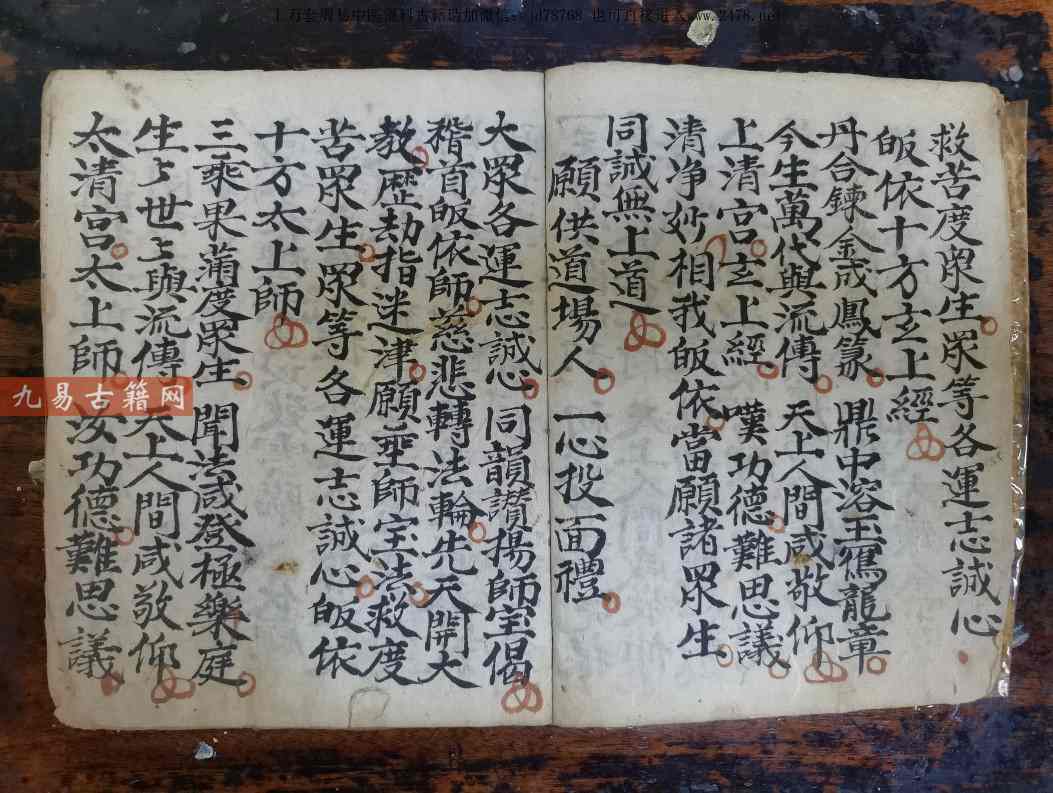 上万套周易中医道科古籍请加微信：jd78768 也可直接进入www.2478.net
救苦度眾生眾等各運志誠心
皈依十方玄上經
丹台鍊金成鳳篆鼎中溶玉寫龍章
今生萬代與流傳天上人間咸敬仰
上清宮玄上經嘆功德難思議
清净妙相我皈依當願諸眾生
同誠無上道
願供道場人一心投面禮
大眾各運志誠心同韻讚揚師宝偈
稽首皈依師慈悲轉法輪先天開大
教歷劫指迷津願垂師宝法救度
苦眾生眾等各運志誠心皈依
十方太上師
三乘果蒲度眾生聞法咸登極樂庭
生〻世〻與流傳天上人間咸敬仰
太清宮太上師汝功德難思議
九易古籍网